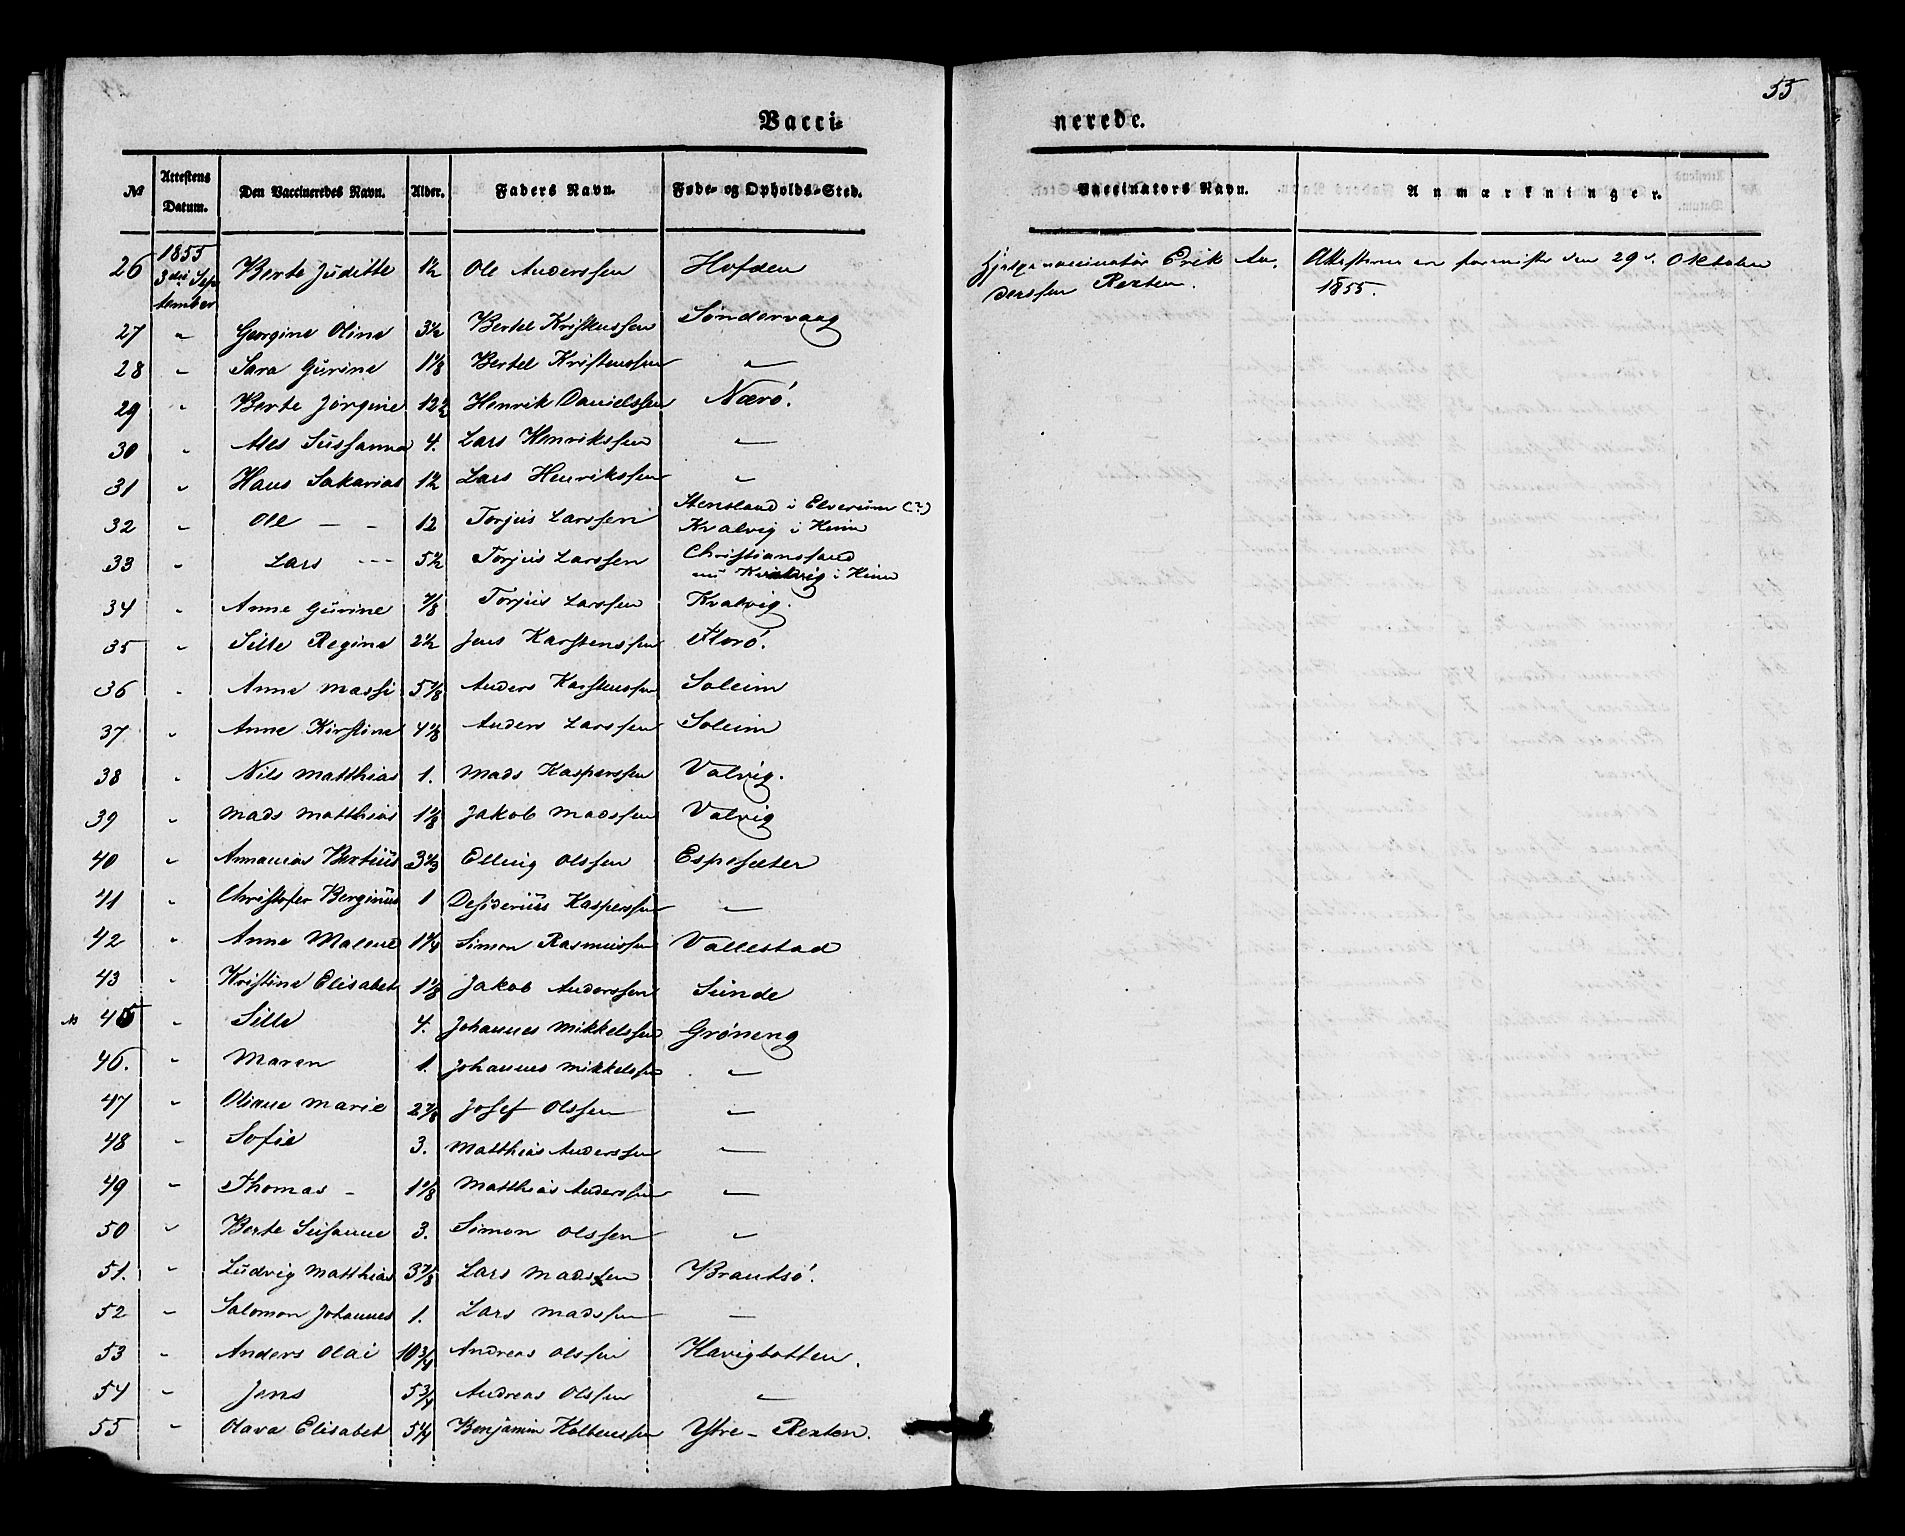 55
Vacci- nerede.
№ Attestens Datum. Den Vaccineredes Navn. Alder. Faders Navn. Føde- og Opholds-Sted. Vaccinators Navn. Anmærkninger.
26 1855 3die September Berte Juditte 1½ Ole Anderssen Hofden Hjelpevaccinatør Erik Anderssen Rexten. Attesterne er formiste den 29d. Oktober 1855.
27 " Georgine Oline 3½ Bertel Kristenssen Søndervaag
28 " Sara Gurine 1⅛ Bertel Kristenssen "
29 " Berte Jørgine 12½ Henrik Danielssen Nærø.
30 " Ales Susanna 4. Lars Henrikssen "
31 " Hans Sakarias 1½ Lars Henrikssen "
32 " Ole – – 12 Torjus Larssen Stensland i Elverum (?) Kvalvig i Kinn
33 " Lars – – – 5½ Torjus Larssen Christianssand nu Kvalvig i Kinn
34 " Anne Gurine ⅞ Torjus Larssen Kvalvig.
35 " Sille Regine 2½ Jens Karstenssen Florø.
36 " Anne Massi 5⅞ Anders Karstenssen Soleim
37 " Anne Kirstine 4⅛ Anders Larssen Soleim
38 " Nils Matthias 1. Mads Kasperssen Valvig.
39 " Mads Matthias 1⅛ Jakob Madssen Valvig
40 " Annanias Bertius 3⅓ Elling Olssen Espesæter
41 " Christofer Berginus 1 Desiderius Kasperssen "
42 " Anne Malene 1¼ Simon Rasmussen Vallestad
43 " Kristine Elisabet 1⅛ Jakob Anderssen Sunde
№ 45 " Sille 4. Johannes Mikkelssen Grøneng
46. " Maren 1. Johannes Mikkelssen "
47 " Oliane Marie 2⅞ Josef Olssen "
48 " Sofie 3. Matthias Anderssen "
49 " Thomas – 1⅛ Matthias Anderssen "
50 " Berte Susanne 3. Simon Olssen "
51. " Ludvig Matthias 3⅞ Lars Madssen Brantsø.
52 " Salomon Johannes 1. Lars Madssen "
53 " Anders Olai 10¾ Andreas Olssen Havigbotten.
54 " Jens 5¾ Andreas Olssen "
55 " Olava Elisabet 5¼ Benjamin Kolbenssen Ytre- Rexten.